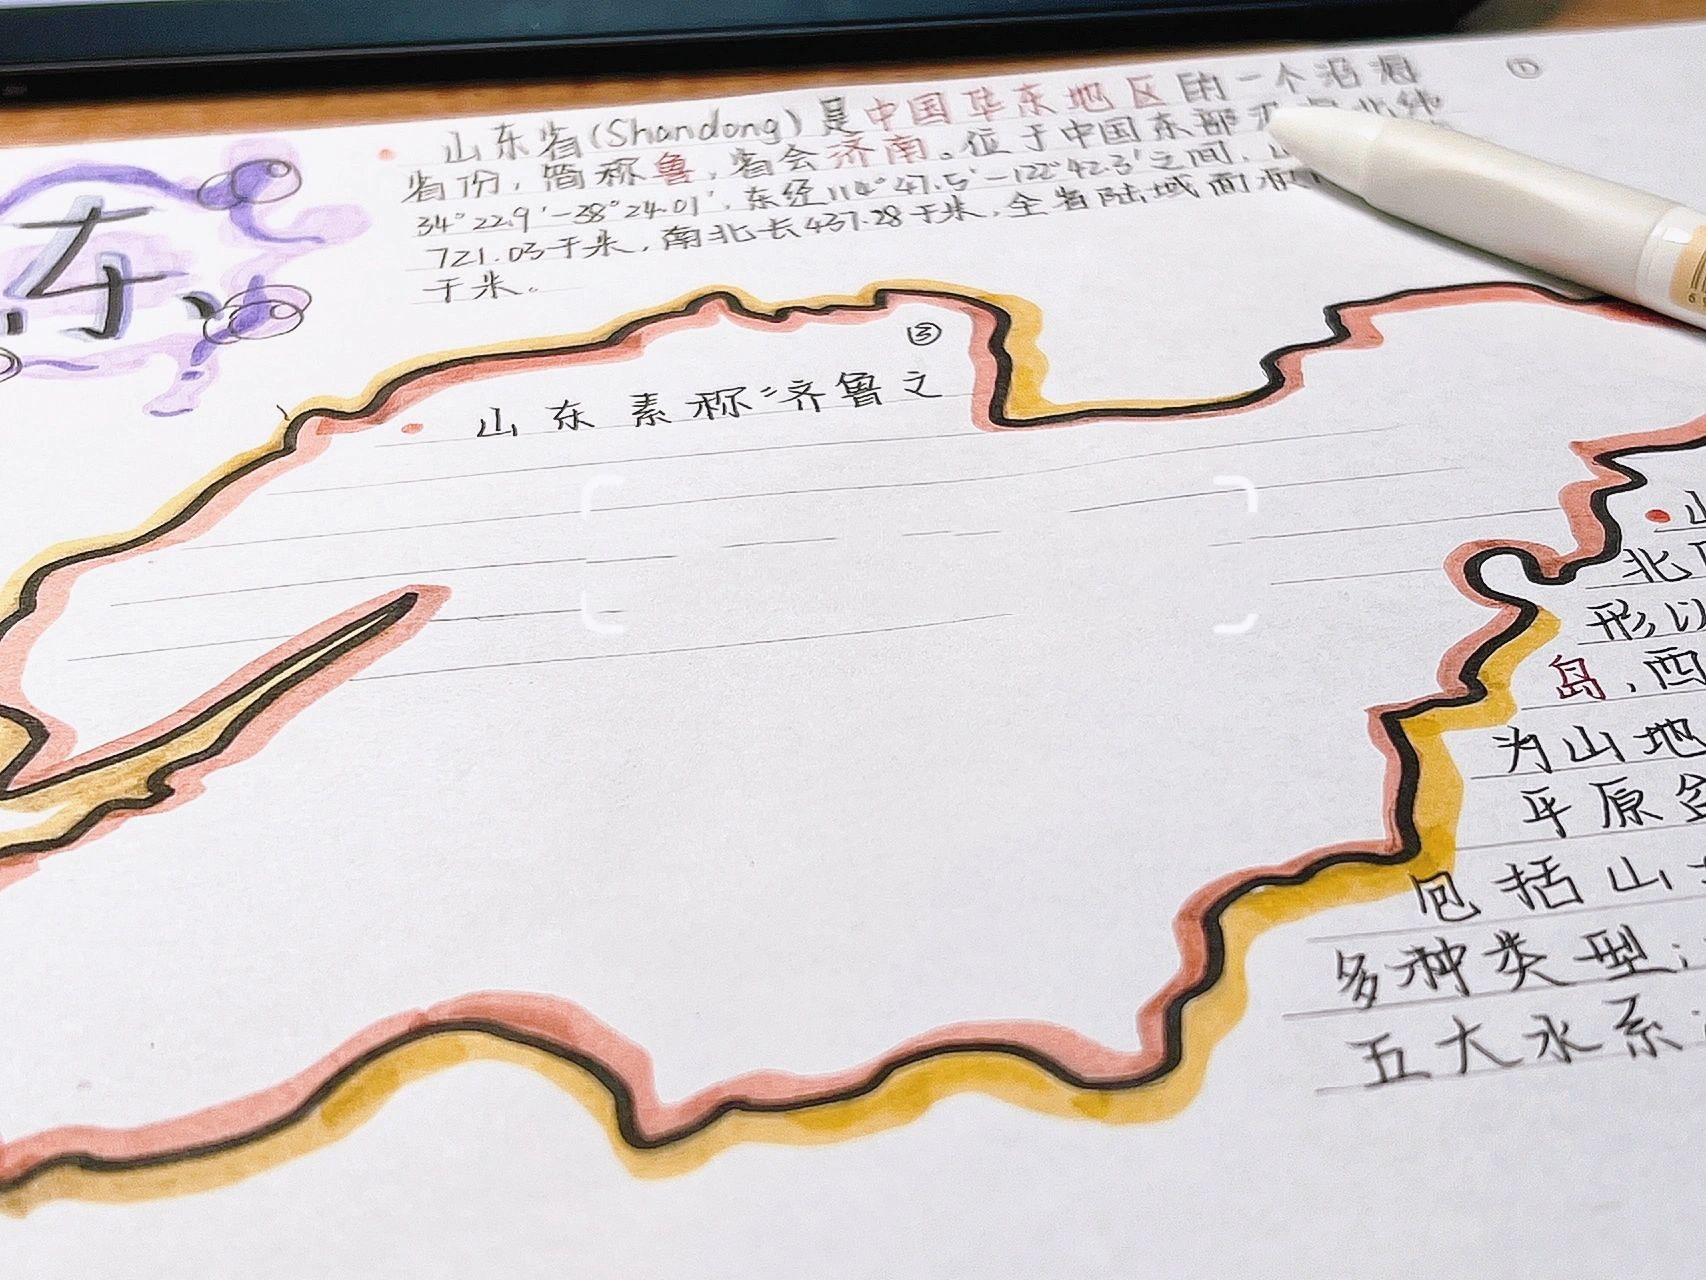 东
①
山东省(Shandong)是中国华东地区的一个沿海
省份，简称鲁，省会济南。位于中国东部沿海北纬
34°22.9′-38°24.01′，东经114°47.5′-122°42.3′之间，
721.03千米，南北长437.28千米，全省陆域面积
千米。
③
山东素称“济鲁之
山
北
形以
岛，西
为山地
平原
包括山
多种类型；
五大水系；